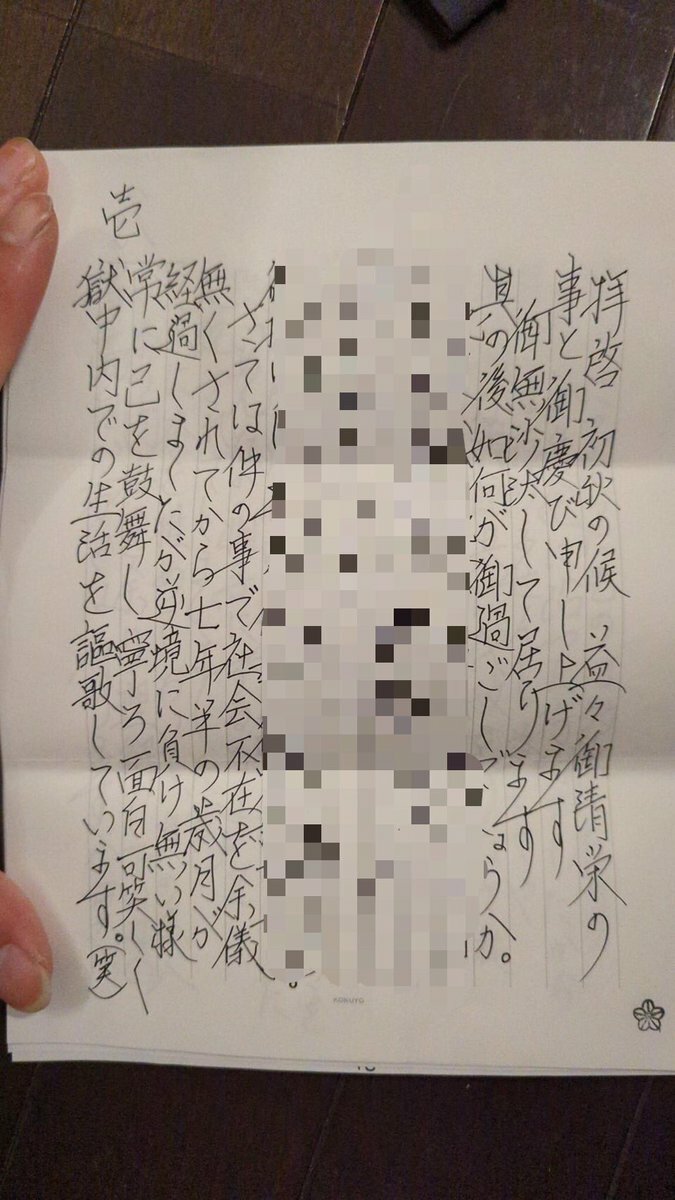 拝啓 初秋の候 益々御清栄の
事と御慶び申し上げます
御無沙汰して居ります
其の後如何が御過ごしでしょうか。
さては件の事で社会不在を余儀
無くされてから七年半の歳月が
経過しましたが逆境に負け無い様
常に己を鼓舞し寧ろ面白可笑しく
獄中内での生活を謳歌しています。(笑)
壱
KOKUYO